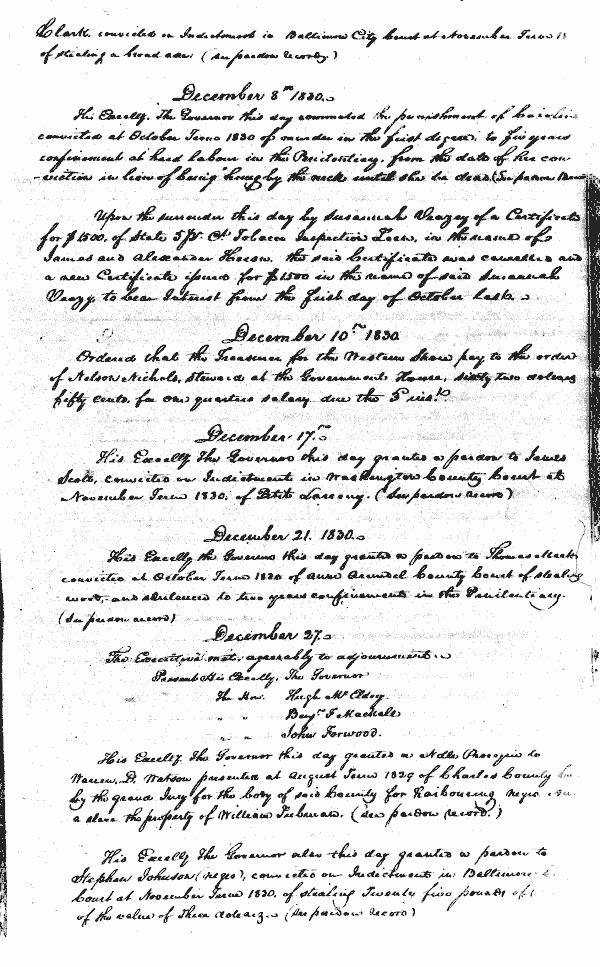 Clark. convicted on Indictment in Baltimore City Court at November Term 18
of stealing a broad axe. (see pardon record)
December 8th 1830.
His Excelly. The Governor this day commuted the punishment of Caroline
convicted at October Term 1830 of murder in the first degree, to five years
confinement at hard labour in the Penitentiary, from the date of her con-
-viction in lieu of being hung by the neck until she be dead (See pardon Record
Upon the surrender this day by Susannah Veazey of a Certificate
for $1500. of State 5 Pr. Ct. Tobacco Inspection Loan, in the name of
James and Alexander the said Certificate was cancelled and
a new Certificate issued for $1500 in the name of said Susannah
Veazy, to bear Interest from the first day of October last.
December 10th 1830
Ordered that the Treasurer for the Western Shore pay to the order
of Nelson Nichols, steward at the Government House, sixty two dollars
fifty cents. for one quarters salary due the 5 inst.
December. 17th
His Excelly The Governor this day granted a pardon to James
Scott, convicted on Indictment in Washington County Court at
November Term 1830. of Petit Larceny. (See pardon record)
December 21. 1830.
His Excelly the Governor this day granted a pardon to Thomas
convicted at October Term 1830 of Anne Arundel County Court of stealing
wood, and sentenced to two years confinement in the Penitentiary.
(See pardon record)
December 27.
The Executive met, agreeably to adjournment.
Present His Excelly. The Governor
The Hon. Hugh McElderry
" " Benj. F Mackall
" " John Forwood.
His Excelly. The Governor this day granted a Nolle Prosequi to
Warren. D. Watson presented at August Term 1829 of Charles County
by the grand Jury for the body of said County for harbouring negro
a slave the property of William Turbman. (see pardon record.)
His Excelly The Governor also this day granted a pardon to
Stephen Johnson (negro), convicted on Indictment in Baltimore
Court at November Term 1830. of stealing Twenty five pounds of
of the value of Three dollars. (see pardon record)